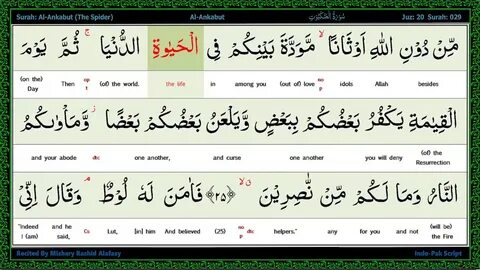 Surah: Al-Ankabut (The Spider) Al-Ankabut سُوْرَةُ الْعَنْكَبُوْت Juz: 20 Surah: 029
مِّنْ دُوْنِ اللّٰهِ اَوْثَانًا ۙ مَّوَدَّةَ بَيْنِكُمْ فِى الْحَيٰوةِ الدُّنْيَا ۚ ثُمَّ يَوْمَ
(on the) Day Then op t (of) the world. the life in among you (out of) love no p idols Allah besides
الْقِيٰمَةِ يَكْفُرُ بَعْضُكُمْ بِبَعْضٍ وَّيَلْعَنُ بَعْضُكُمْ بَعْضًا ۫ وَّمَاْوٰىكُمُ
and your abode dis one another, and curse one another you will deny (of) the Resurrection
النَّارُ وَمَا لَكُمْ مِّنْ نّٰصِرِيْنَ ﴿۲۵﴾ فَاٰمَنَ لَهٗ لُوْطٌ ۘ وَقَالَ اِنِّىْ
"Indeed I (am) and he said, Cs Lut, [in] him And believed (25) no p dis helpers." any for you and not (will be) the Fire
Recited By Mishary Rashid Alafasy Indo-Pak Script